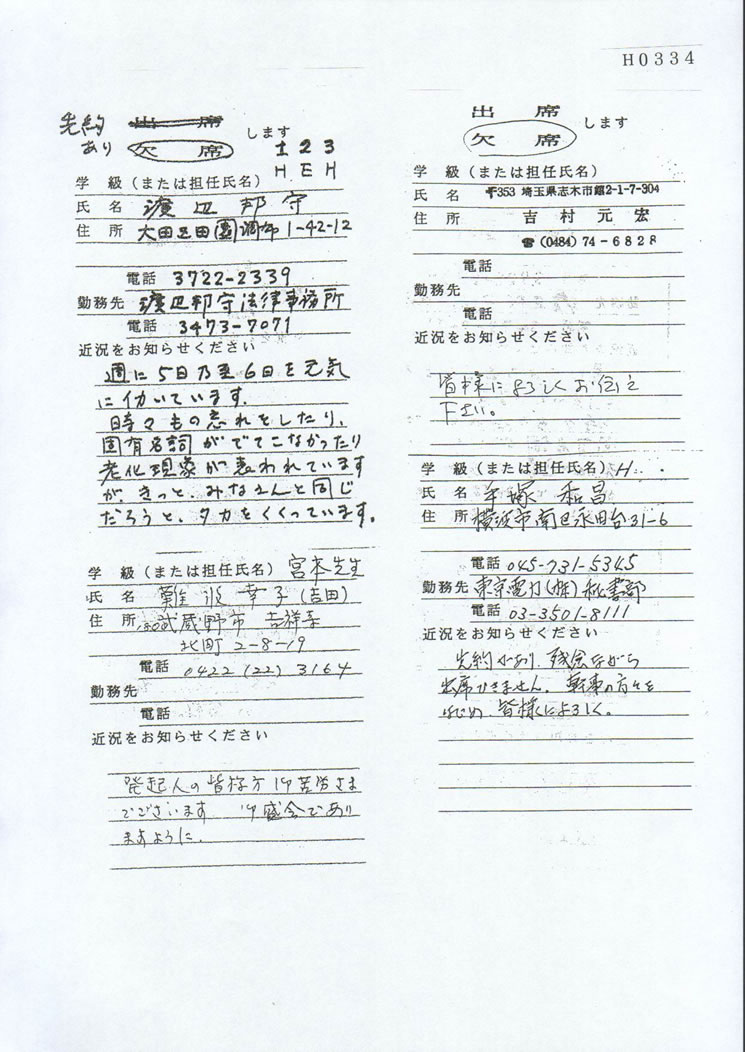 H0334
先約
あり
出席
欠席
します
1 2 3
H E H
学級(または担任氏名)
氏名 渡辺邦守
住所 大田区田園調布1-42-12
電話 3722-2339
勤務先 渡辺邦守法律事務所
電話 3473-7071
近況をお知らせください
週に5日乃至6日を元気
にイかいています.
時々もの忘れをしたり、
固有名詞がでてこなかったり
老化現象が表われています
が、きっと、みなさんと同じ
だろうと、タカをくくっています。
学級(または担任氏名) 宮本先生
氏名 難波幸子(吉田)
住所 武蔵野市 吉祥寺
北町2-8-19
電話 0422(22)3164
勤務先
電話
近況をお知らせください
発起人の皆様方御苦労さま
でございます 御盛会であり
ますように.
出席
欠席
します
学級(または担任氏名)
氏名 〒353 埼玉県志木市館2-1-7-304
住所 吉村元宏
☎(0484)74-6828
電話
勤務先
電話
近況をお知らせください
皆様によろしくお伝え
下さい。
学級(または担任氏名) H
氏名 手塚和昌
住所 横浜市南区永田台31-6
電話 045-731-5345
勤務先 東京電力(株)秘書部
電話 03-3501-8111
近況をお知らせください
先約があり、残念ながら
出席できません。幹事の方々を
はじめ、皆様によろしく。